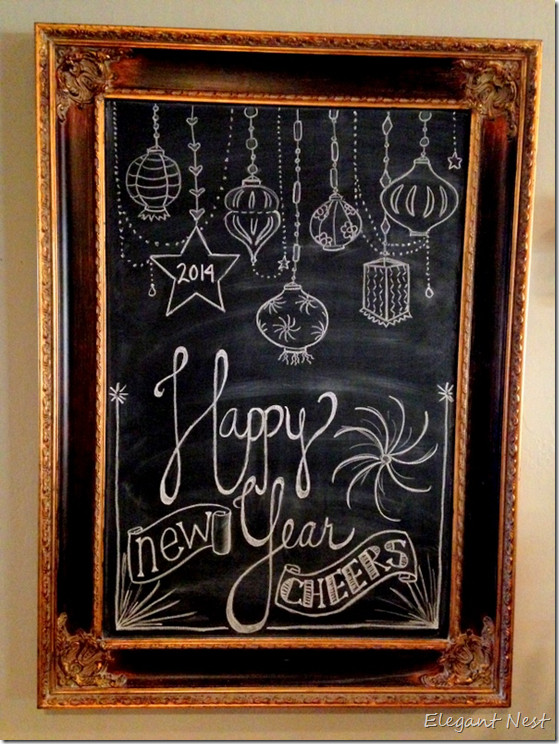 2014
Happy
New Year
CHEERS
Elegant Nest